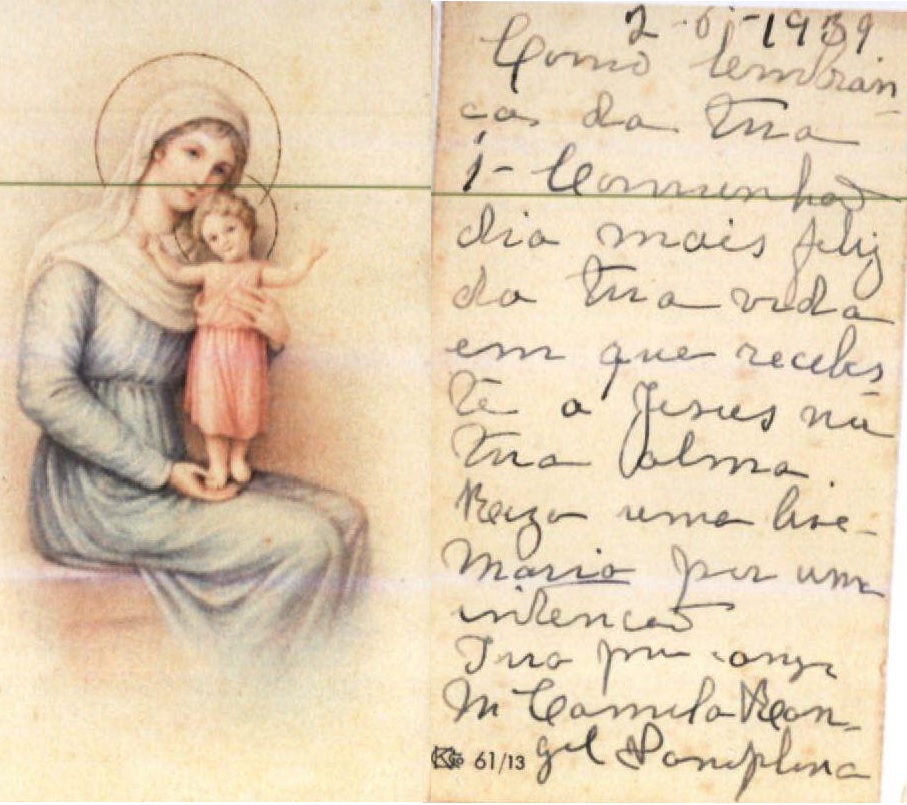 2-6-1939
Como lembran
ças da tua
1- Comunhão
dia mais feliz
da tua vida
em que recebes
te a Jesus na
tua alma.
Reza uma Ave-
Maria por um
intenção
Tua
Mª Camila Ran-
gel Pamplona
61/13